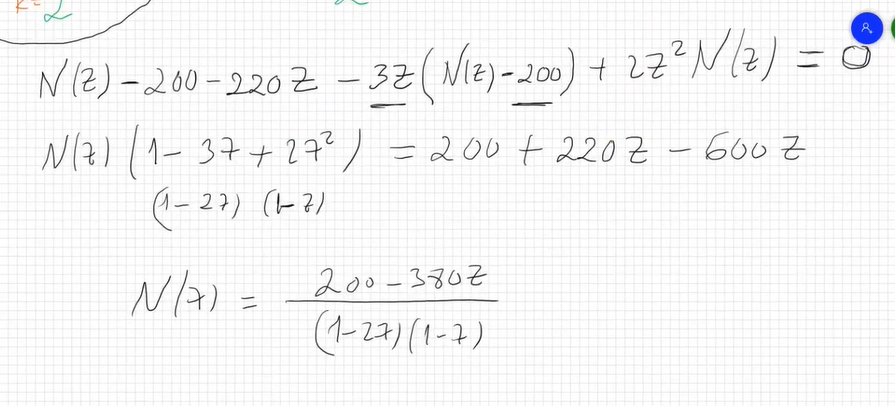 k=2
2
N(z) - 200 - 220z - 3z(N(z) - 200) + 2z²N(z) = 0
N(z)(1 - 3z + 2z²) = 200 + 220z - 600z
(1 - 2z)(1 - z)
N(z) = (200 - 380z) / ((1 - 2z)(1 - z))